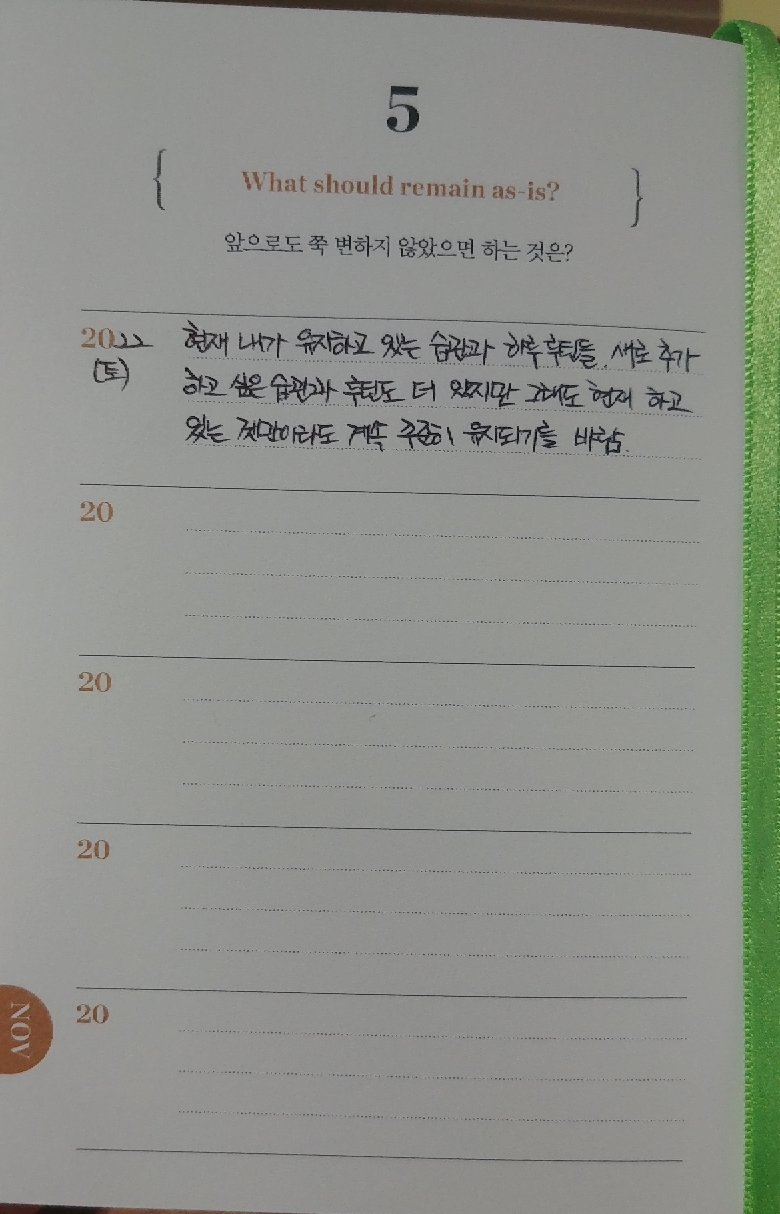 5
{ What should remain as-is? }
앞으로도 쭉 변하지 않았으면 하는 것은?
2022 현재 내가 유지하고 있는 습관과 하루 루틴들. 새로 추가
(토) 하고 싶은 습관과 루틴도 더 있지만 그래도 현재 하고
있는 것만이라도 계속 꾸준히 유지되기를 바람.
20
20
20
20
NOV